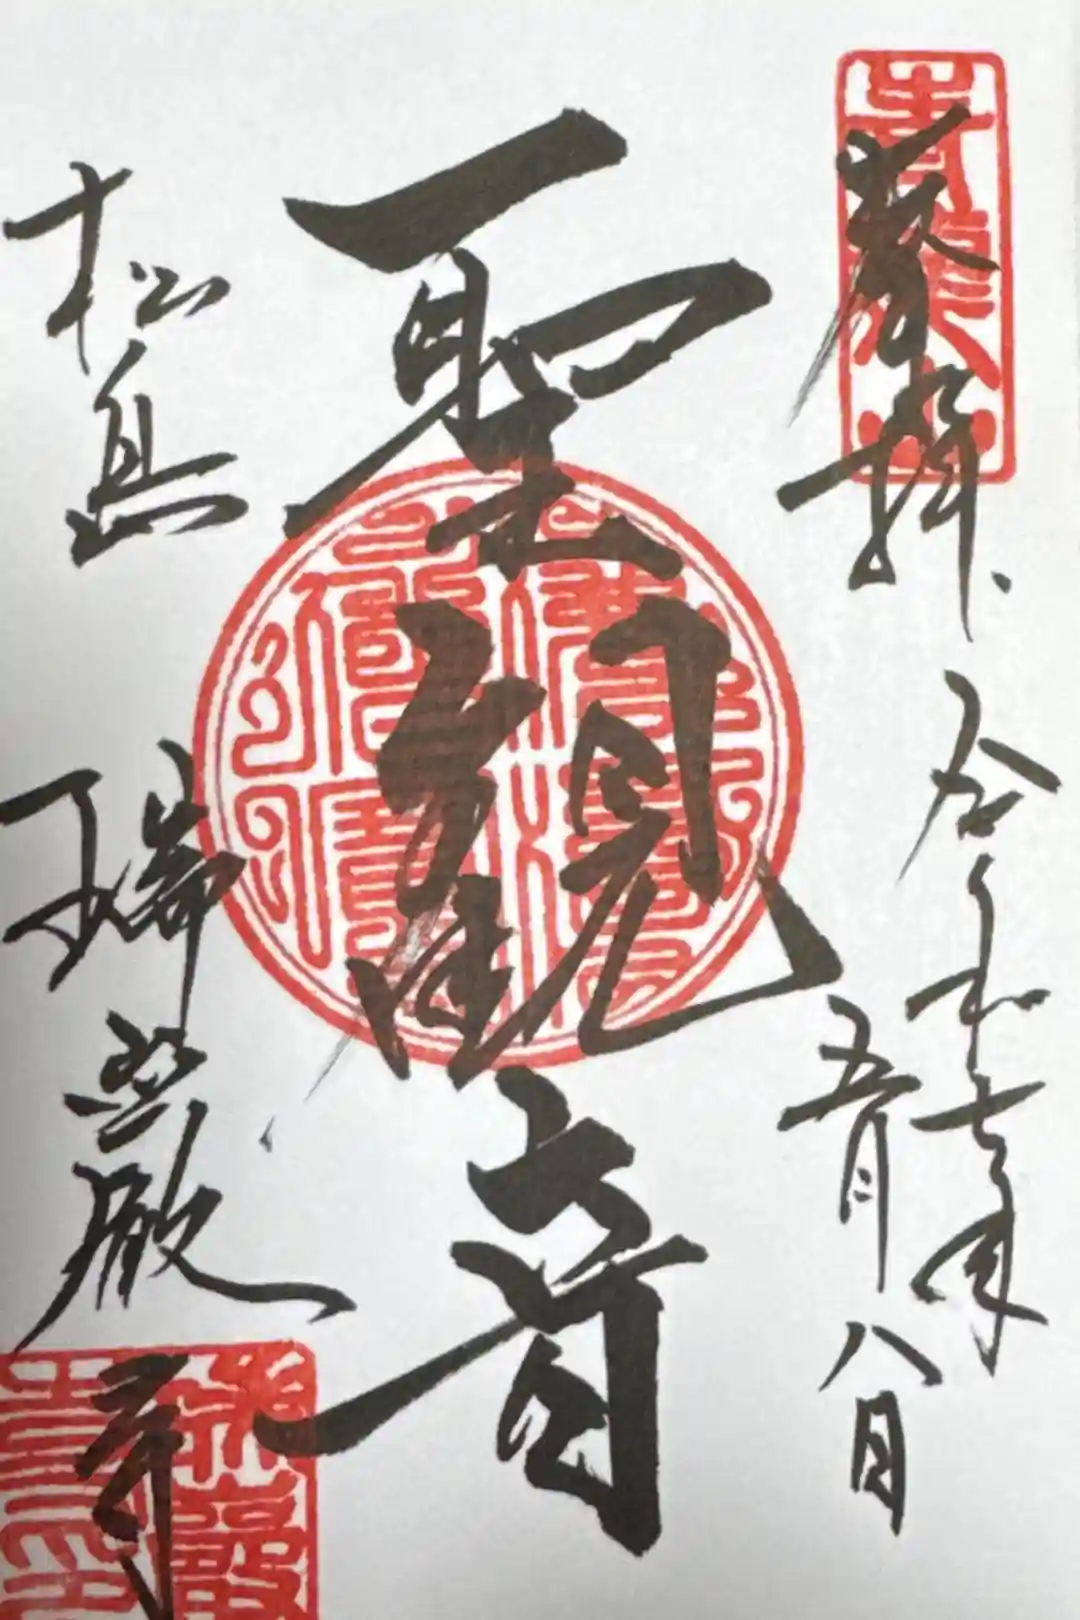 奉拝
令和七年
五月八日
聖観音
松島
瑞巌寺